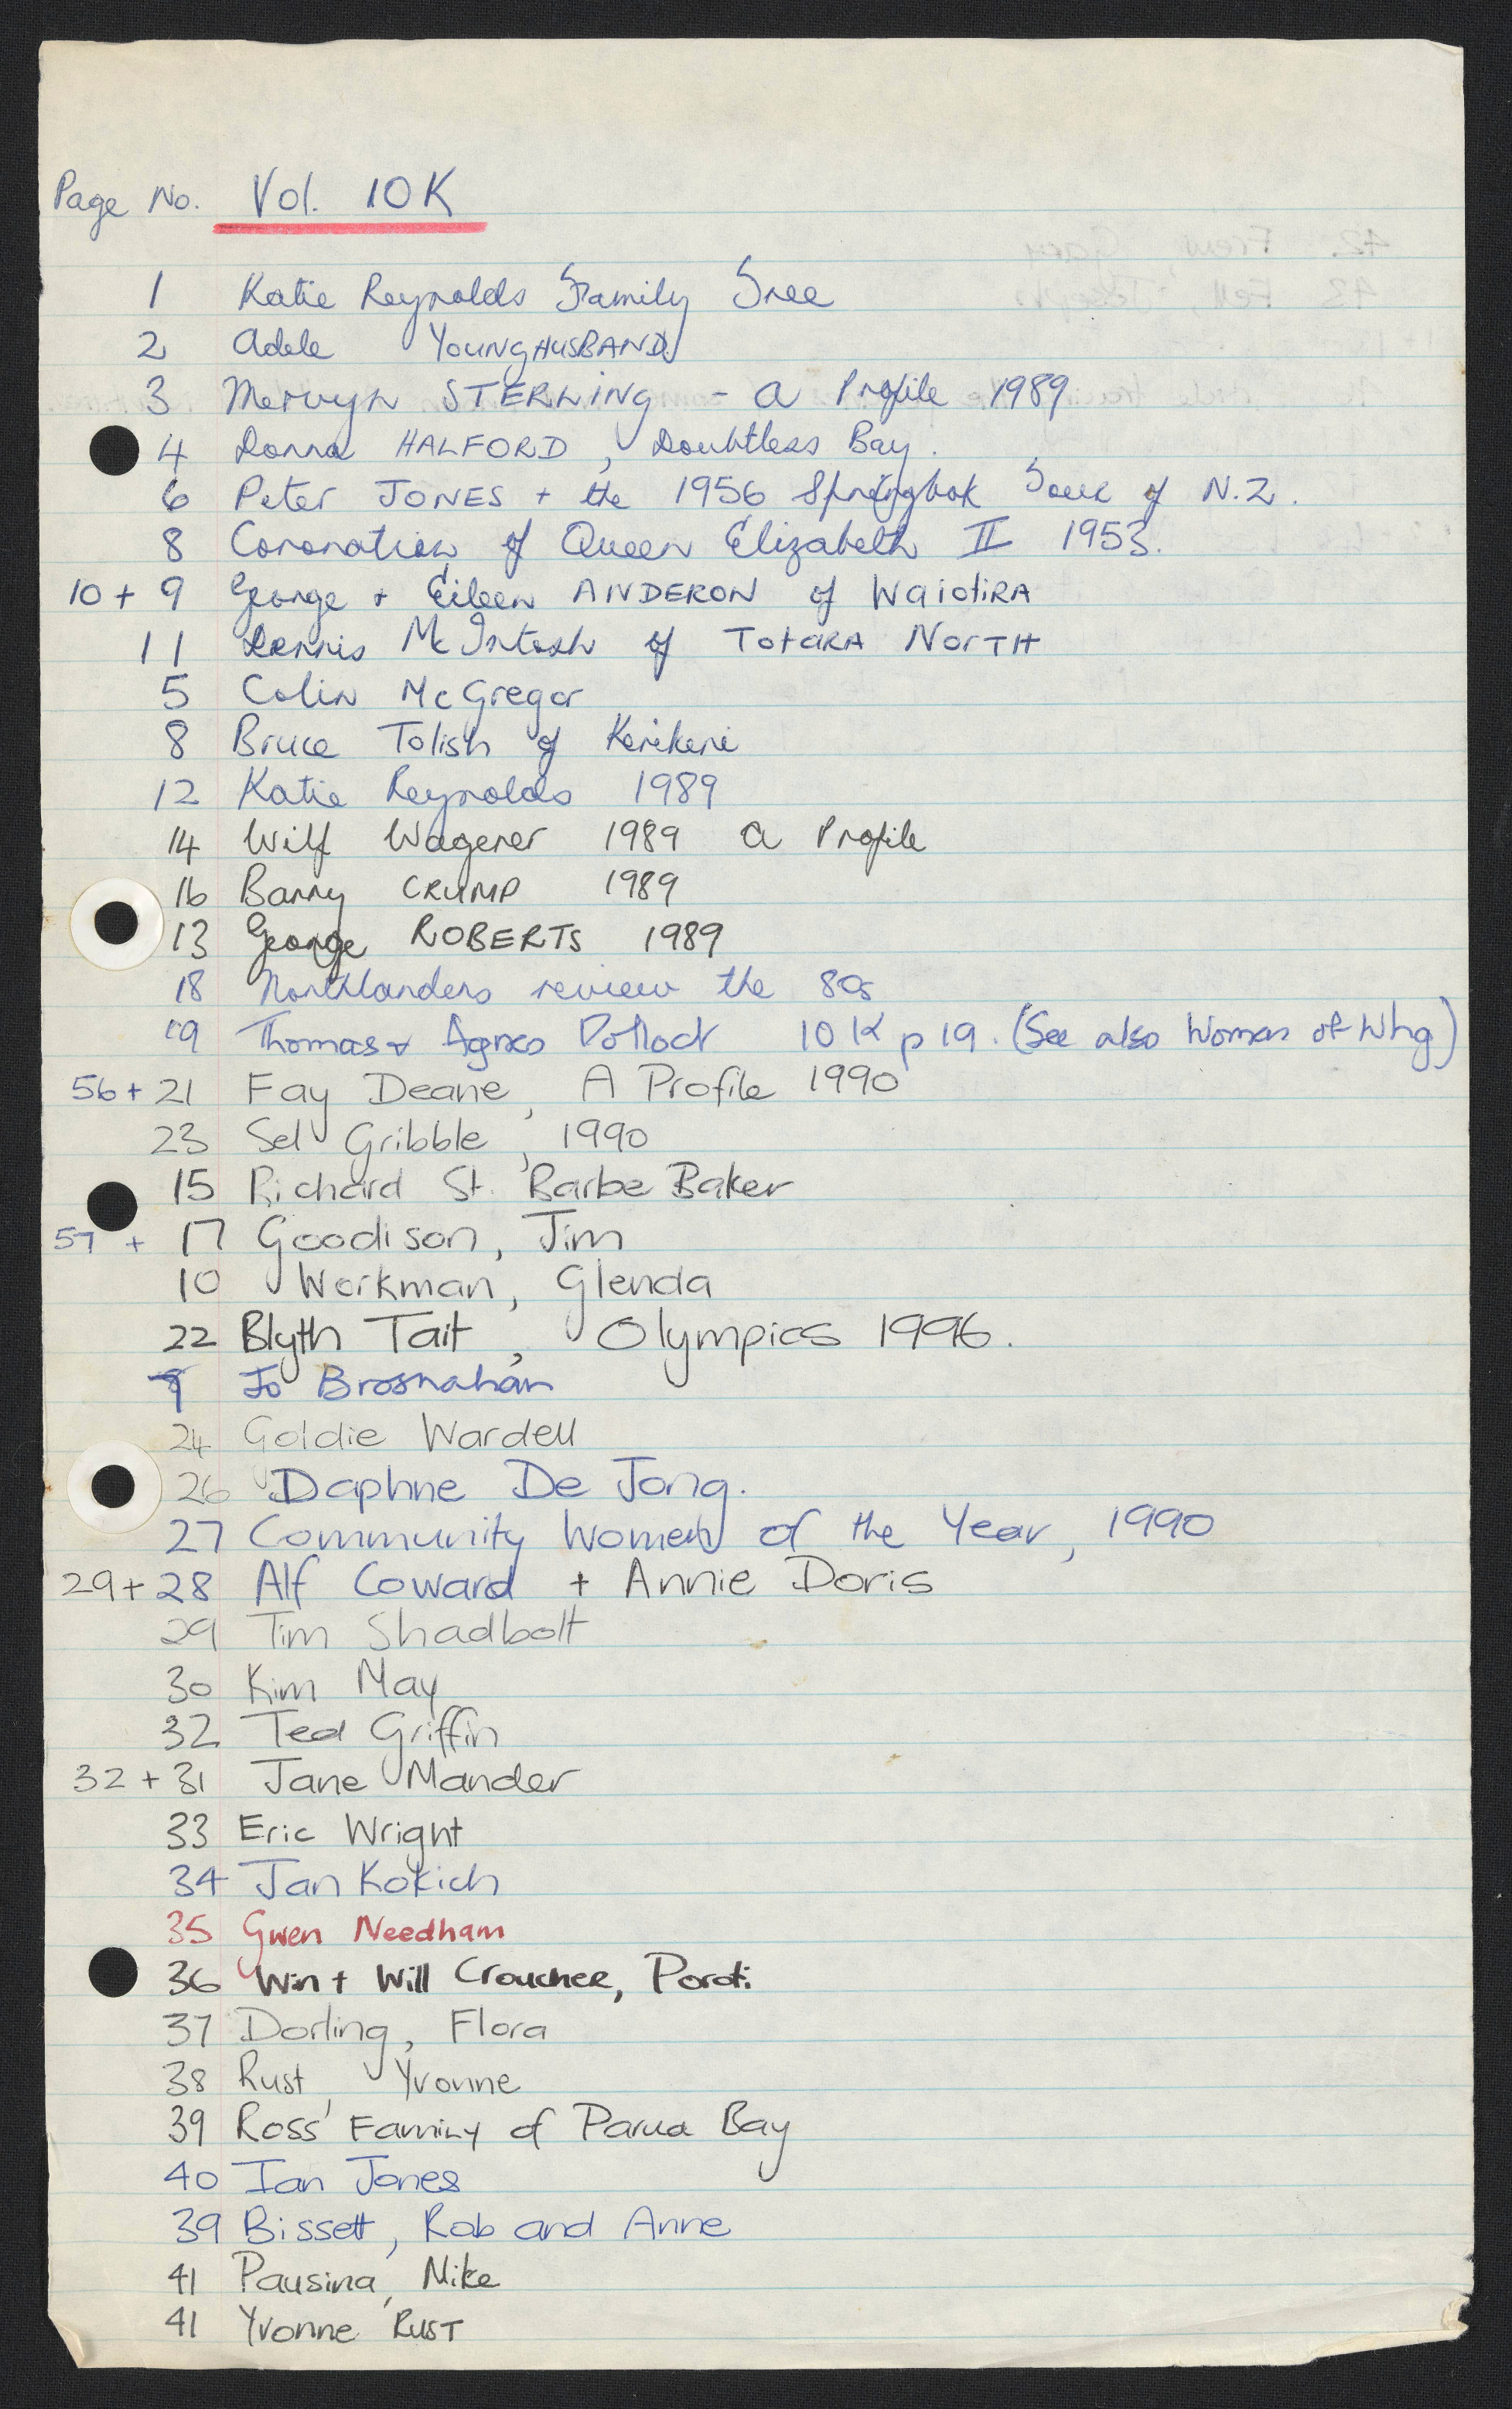 Page No. Vol. 10K
1 Katie Reynolds Family Tree
2 Adele YOUNGHUSBAND
3 Mervyn STERLING - a Profile 1989
4 Donna HALFORD, Doubtless Bay.
6 Peter JONES + the 1956 Springbok Tour of N.Z.
8 Coronation of Queen Elizabeth II 1953.
10 + 9 George + Eileen ANDERON of WaiotiRA
11 Dennis McIntosh of TotaRA NorTH
5 Colin McGregor
8 Bruce Tolish of Kerikeri
12 Katie Reynolds 1989
14 Wilf Wagener 1989 a Profile
16 Barry CRUMP 1989
13 George ROBERTS 1989
18 Northlanders review the 80s
19 Thomas + Agnes Pollock 10 K p 19. (See also Women of Whg)
56 + 21 Fay Deane, A Profile 1990
23 Sel Gribble, 1990
15 Richard St. Barbe Baker
57 + 17 Goodison, Jim
10 Workman, Glenda
22 Blyth Tait, Olympics 1996.
Jo Brosnahan
24 Goldie Wardell
26 Daphne De Jong.
27 Community Women of the Year, 1990
29 + 28 Alf Coward + Annie Doris
29 Tim Shadbolt
30 Kim May
32 Ted Griffin
32 + 31 Jane Mander
33 Eric Wright
34 Jan Kokich
35 Gwen Needham
36 Win + Will Croucher, Poroti
37 Dorling, Flora
38 Rust, Yvonne
39 Ross Family of Parua Bay
40 Ian Jones
39 Bissett, Rob and Anne
41 Pausina, Mike
41 Yvonne RUST